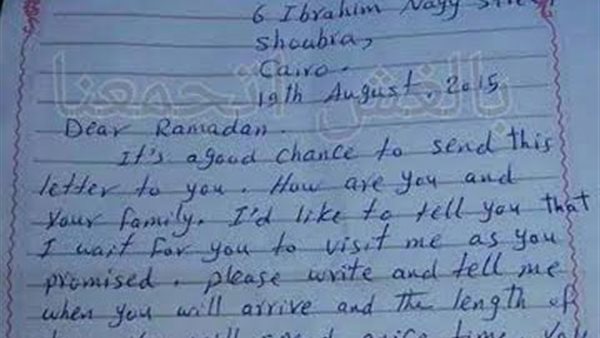 6 Ibrahim Nagy street
Shoubra,
Cairo.
19th August, 2015
بالغش اتجمعنا
Dear Ramadan.
It's agood chance to send this
letter to you. How are you and
your family. I'd like to tell you that
I wait for you to visit me as you
promised. please write and tell me
when you will arrive and the length of
nice time. You